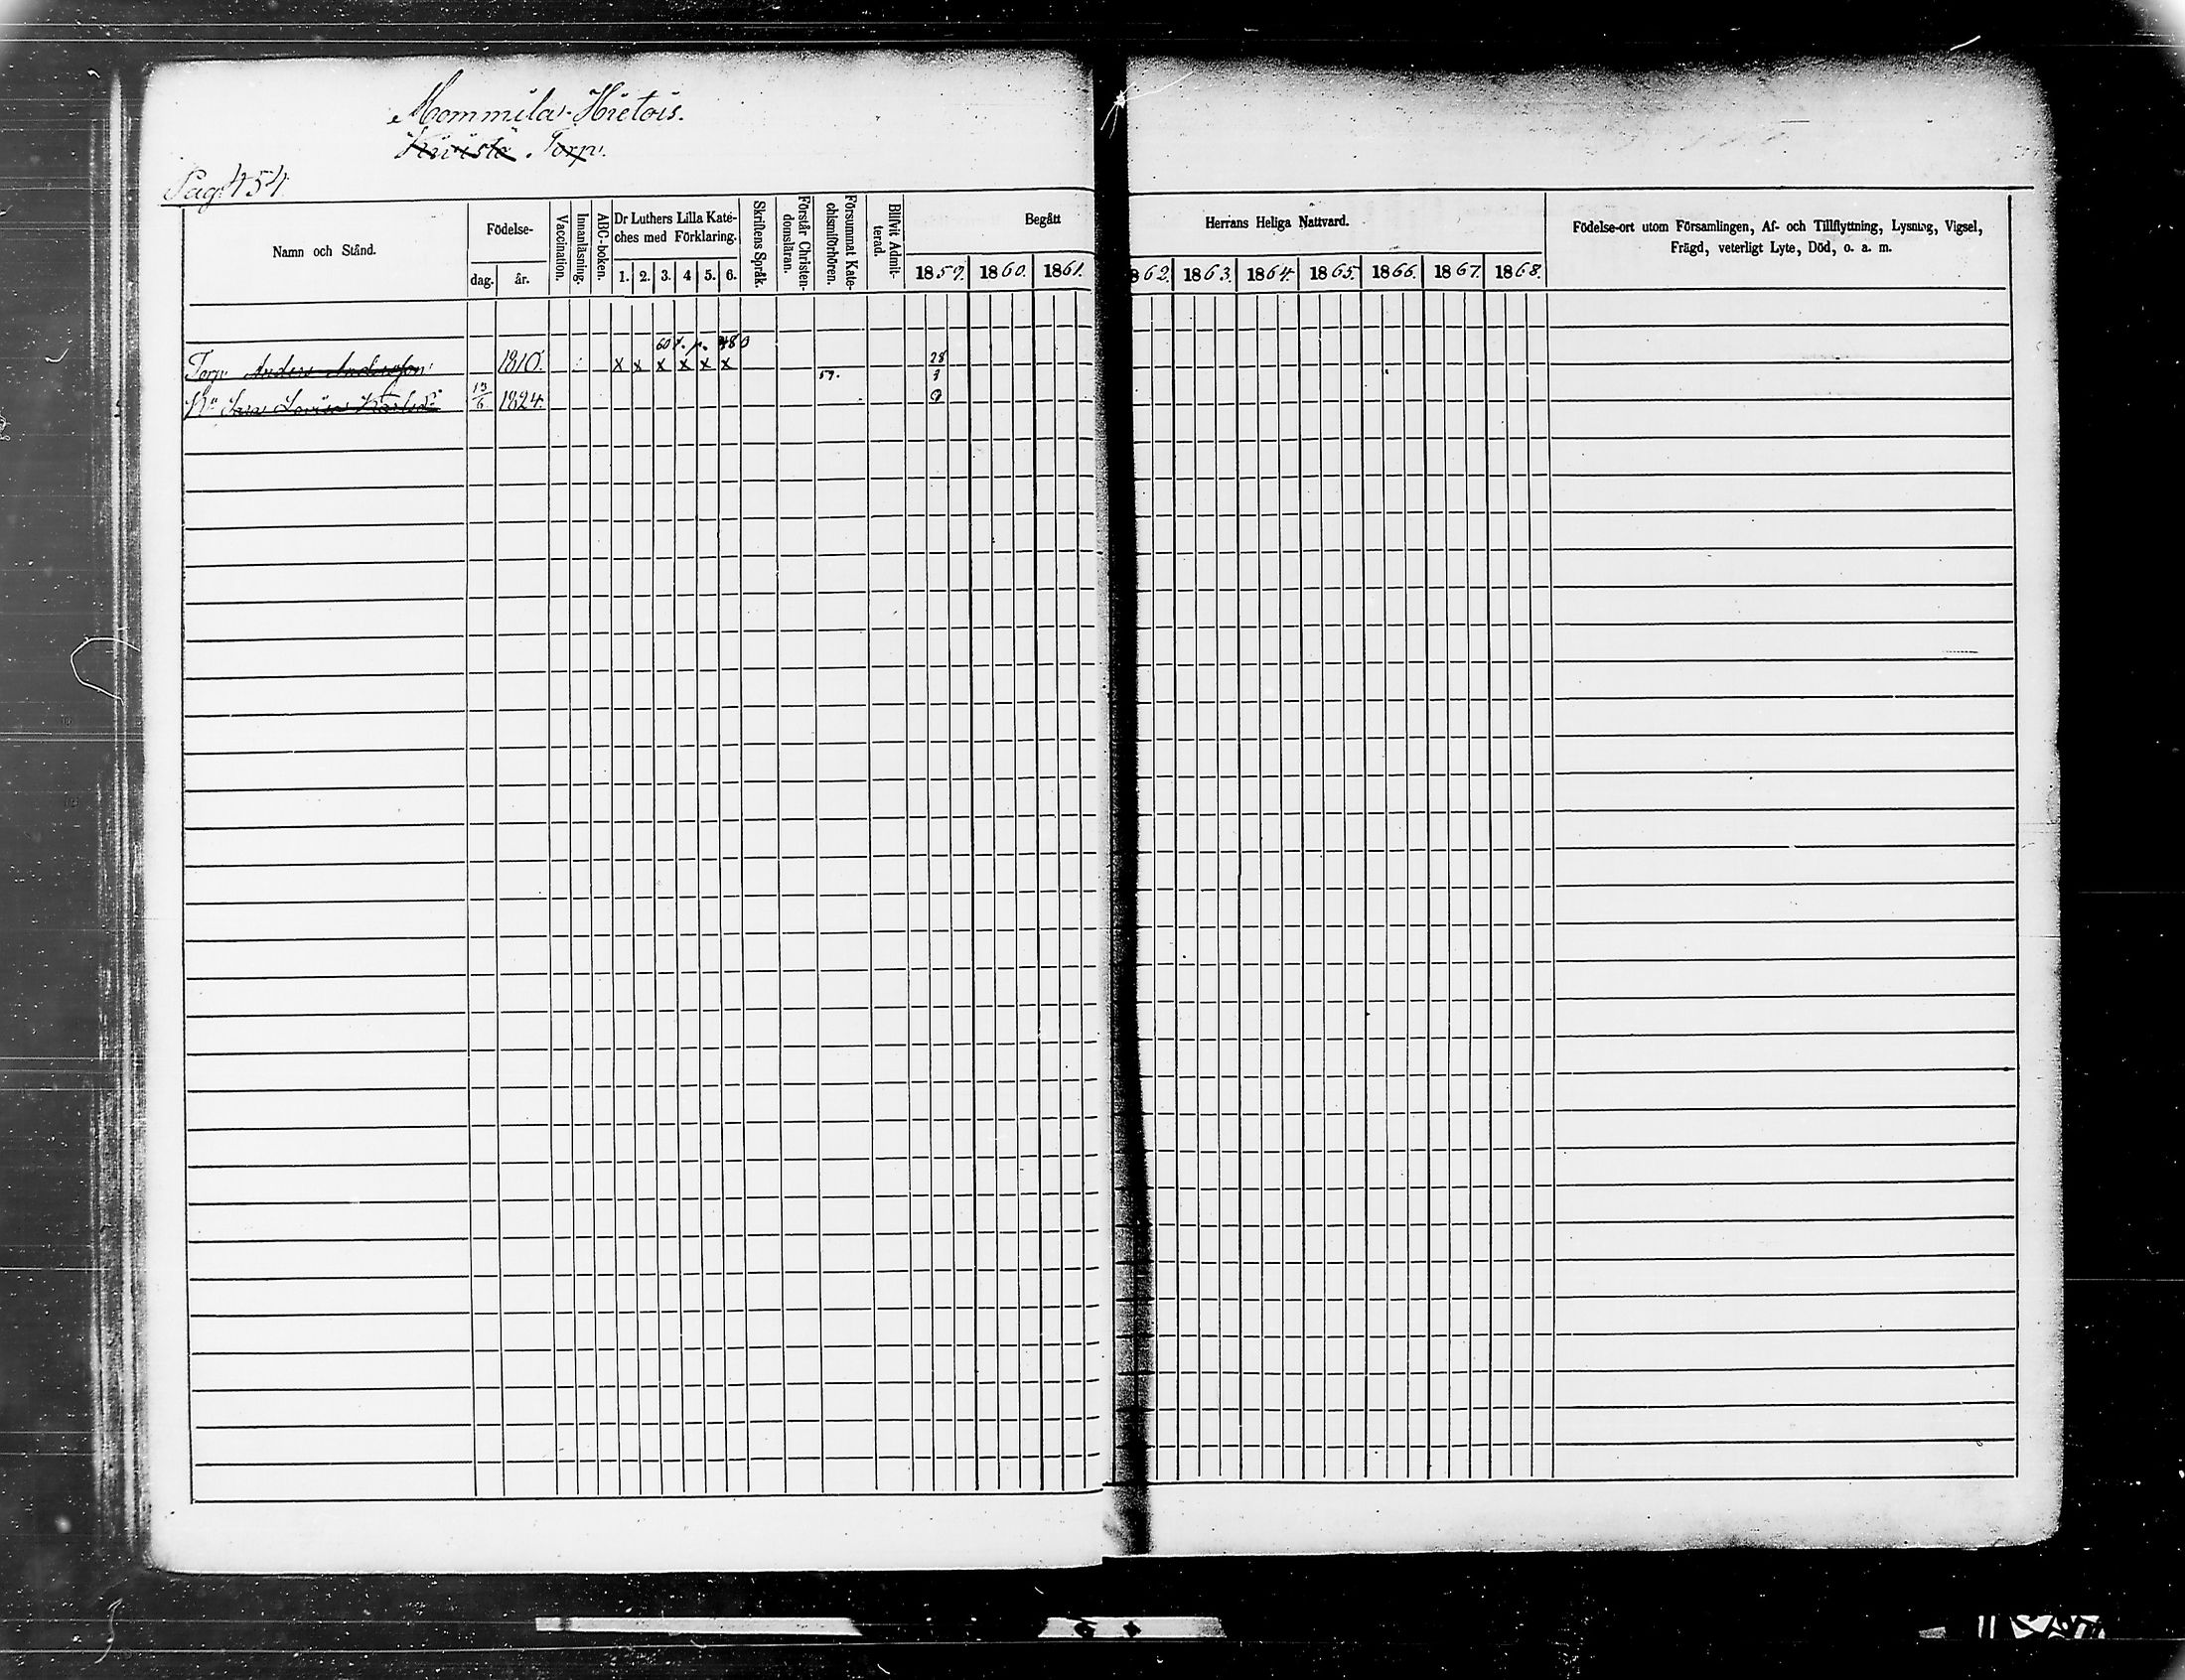 Mommila Hietois.
Kivistö Torp.
Pag. 454.
Namn och Stånd.
Födelse-
dag.
år.
Vaccination.
Innanläsning.
ABC-boken.
Dr Luthers Lilla Kate-
ches med Förklaring.
1. 2. 3. 4 5. 6.
Skriftens Språk.
Förstår Christen-
domsläran.
Försummat Kate-
chismiförhören.
Blifvit Admit-
terad.
Begått
1859. 1860. 1861.
Herrans Heliga Nattvard.
1862. 1863. 1864. 1865. 1866. 1867. 1868.
Födelse-ort utom Församlingen, Af- och Tillflyttning, Lysning, Vigsel,
Frägd, veterligt Lyte, Död, o. a. m.
60 t. p. 480
Torp. Anders Andersson 1810. x x x x x x 59. 28/3
Hu Sara Lovisa Karlsdr 13/6 1824.